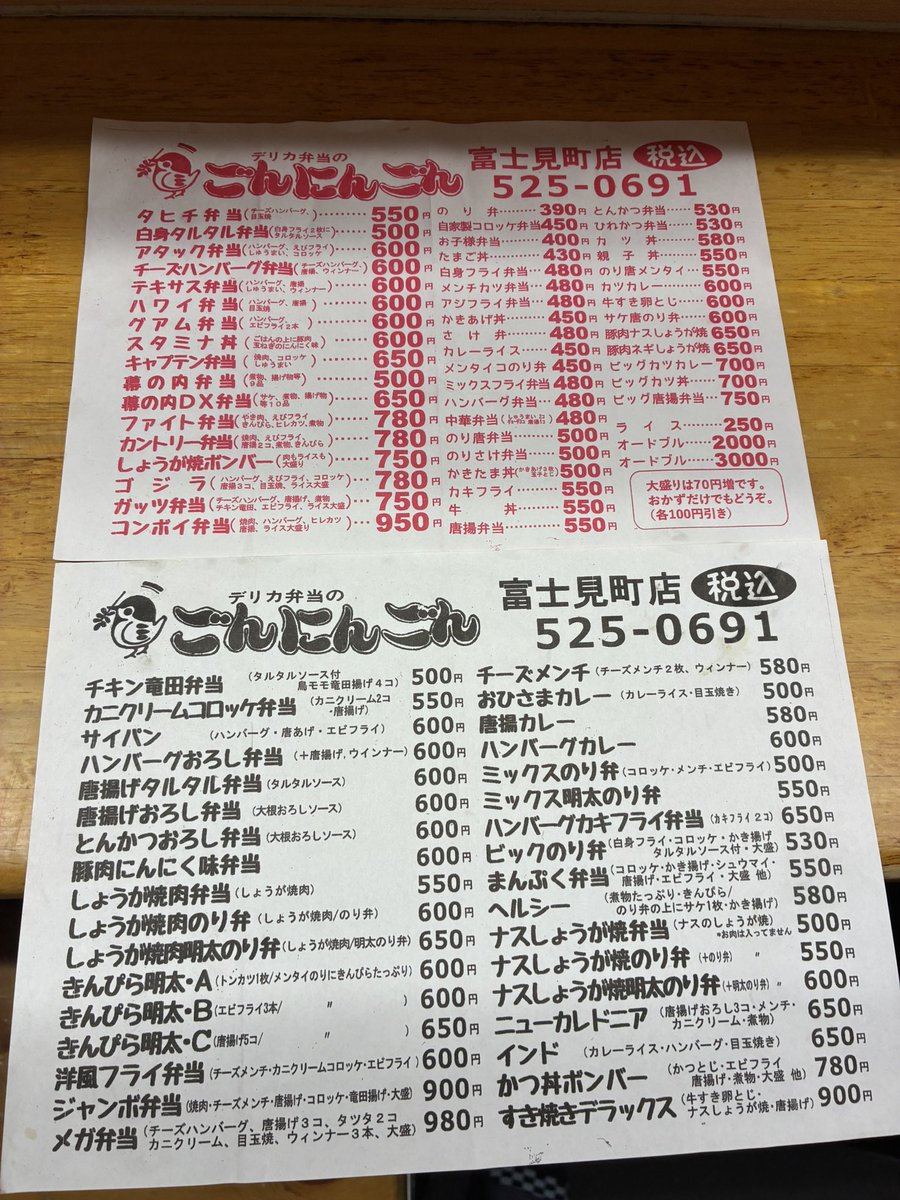 デリカ弁当の
ごんにんごん
富士見町店 税込
525-0691
タヒチ弁当(チーズハンバーグ、目玉焼)………550円
白身タルタル弁当(白身フライ2枚にタルタルソース)…500円
アタック弁当(ハンバーグ、えびフライ しゅうまい、コロッケ)…600円
チーズハンバーグ弁当(チーズハンバーグ、唐揚、ウィンナー)…600円
テキサス弁当(ハンバーグ、唐揚 しゅうまい、ウィンナー)…600円
ハワイ弁当(ハンバーグ、唐揚 目玉焼)………600円
グアム弁当(ハンバーグ、エビフライ2本)………600円
スタミナ丼(ごはんの上に豚肉 玉ねぎのにんにく味)…600円
キャプテン弁当(焼肉、コロッケ しゅうまい)………650円
幕の内弁当(煮物、揚げ物等 9品)………500円
幕の内DX弁当(サケ、煮物、揚げ物 等10品)…650円
ファイト弁当(やき肉、えびフライ きんぴら、ヒレカツ、煮物)…780円
カントリー弁当(焼肉、えびフライ、唐揚2コ、煮物、きんぴら)…780円
しょうが焼ボンバー(肉もライスも大盛り)………750円
ゴジラ(ハンバーグ、えびフライ、コロッケ 唐揚3コ、目玉焼、ライス大盛)…780円
ガッツ弁当(チーズハンバーグ、唐揚げ、煮物 チキン竜田、エビフライ、ライス大盛)…750円
コンボイ弁当(焼肉、ハンバーグ、ヒレカツ 唐揚、ライス大盛り)…950円
のり弁………390円
自家製コロッケ弁当450円
お子様弁当………400円
たまご丼………430円
白身フライ弁当…480円
メンチカツ弁当…480円
アジフライ弁当…480円
かきあげ丼………450円
さけ弁………480円
カレーライス…450円
メンタイコのり弁…450円
ミックスフライ弁当480円
ハンバーグ弁当…480円
中華弁当 480円
のり唐弁当………500円
のりさけ弁当……500円
かきたま丼(かきあげ2枚 玉子とじ)500円
カキフライ………550円
牛丼………550円
唐揚弁当………550円
とんかつ弁当……530円
ひれかつ弁当……530円
カツ丼………580円
親子丼………550円
のり唐メンタイ…550円
カツカレー………600円
牛すき卵とじ……600円
サケ唐のり弁……600円
豚肉ナスしょうが焼650円
豚肉ネギしょうが焼650円
ビッグカツカレー700円
ビッグカツ丼……700円
ビッグ唐揚弁当…750円
ライス………250円
オードブル………2000円
オードブル………3000円
大盛りは70円増です。
おかずだけでもどうぞ。
(各100円引き)
デリカ弁当の
ごんにんごん
富士見町店 税込
525-0691
チキン竜田弁当(タルタルソース付 鳥モモ竜田揚げ4コ)500円
カニクリームコロッケ弁当(カニクリーム2コ・唐揚げ)550円
サイパン(ハンバーグ・唐あげ・エビフライ)600円
ハンバーグおろし弁当(+唐揚げ,ウインナー)600円
唐揚げタルタル弁当(タルタルソース)600円
唐揚げおろし弁当(大根おろしソース)600円
とんかつおろし弁当(大根おろしソース)600円
豚肉にんにく味弁当 600円
しょうが焼肉弁当(しょうが焼肉)550円
しょうが焼肉のり弁(しょうが焼肉/のり弁)600円
しょうが焼肉明太のり弁(しょうが焼肉/明太のり弁)650円
きんぴら明太・A(トンカツ1枚/メンタイのりにきんぴらたっぷり)600円
きんぴら明太・B(エビフライ3本/ 〃 )600円
きんぴら明太・C(唐揚げ5コ/ 〃 )650円
洋風フライ弁当(チーズメンチ・カニクリームコロッケ・エビフライ)600円
ジャンボ弁当(焼肉・チーズメンチ・唐揚げ・コロッケ・竜田揚げ・大盛)900円
メガ弁当(チーズハンバーグ、唐揚げ3コ、タツタ2コ カニクリーム、目玉焼、ウィンナー3本、大盛)980円
チーズメンチ(チーズメンチ2枚、ウィンナー)580円
おひさまカレー(カレーライス・目玉焼き)500円
唐揚カレー 580円
ハンバーグカレー 600円
ミックスのり弁(コロッケ・メンチ・エビフライ)500円
ミックス明太のり弁 550円
ハンバーグカキフライ弁当(カキフライ2コ)650円
ビックのり弁(白身フライ・コロッケ・かき揚げ タルタルソース付・大盛)530円
まんぷく弁当(コロッケ・かき揚げ・シュウマイ・唐揚げ・エビフライ・大盛 他)550円
ヘルシー(煮物たっぷり・きんぴら/のり弁の上にサケ1枚・かき揚げ)580円
ナスしょうが焼弁当(ナスのしょうが焼)*お肉は入ってません 500円
ナスしょうが焼のり弁(+のり弁) 〃 550円
ナスしょうが焼明太のり弁(+明太のり弁) 〃 600円
ニューカレドニア(唐揚げおろし3コ・メンチ・カニクリーム・煮物)650円
インド(カレーライス・ハンバーグ・目玉焼き)650円
かつ丼ボンバー(かつとじ・エビフライ 唐揚げ・煮物・大盛 他)780円
すき焼きデラックス(牛すき卵とじ・ナスしょうが焼・唐揚げ)900円